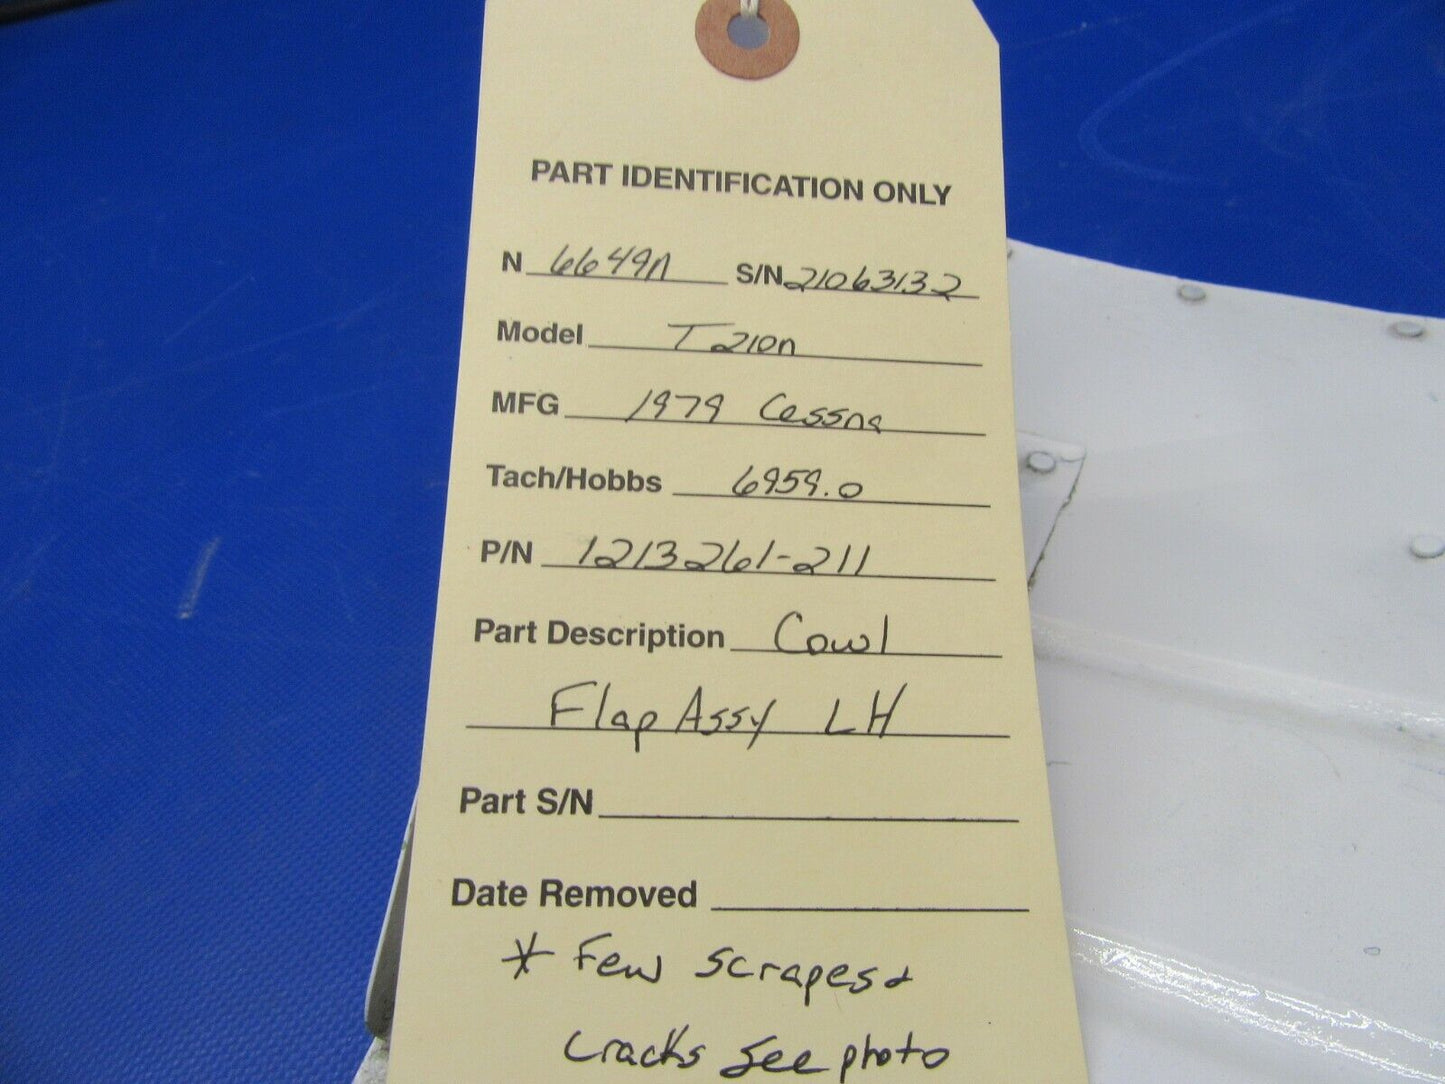 PART IDENTIFICATION ONLY
N 6649N S/N 21063132
Model T210N
MFG 1979 Cessna
Tach/Hobbs 6959.0
P/N 1213261-211
Part Description Cowl
Flap Assy LH
Part S/N
Date Removed
* Few scrapes &
cracks see photo